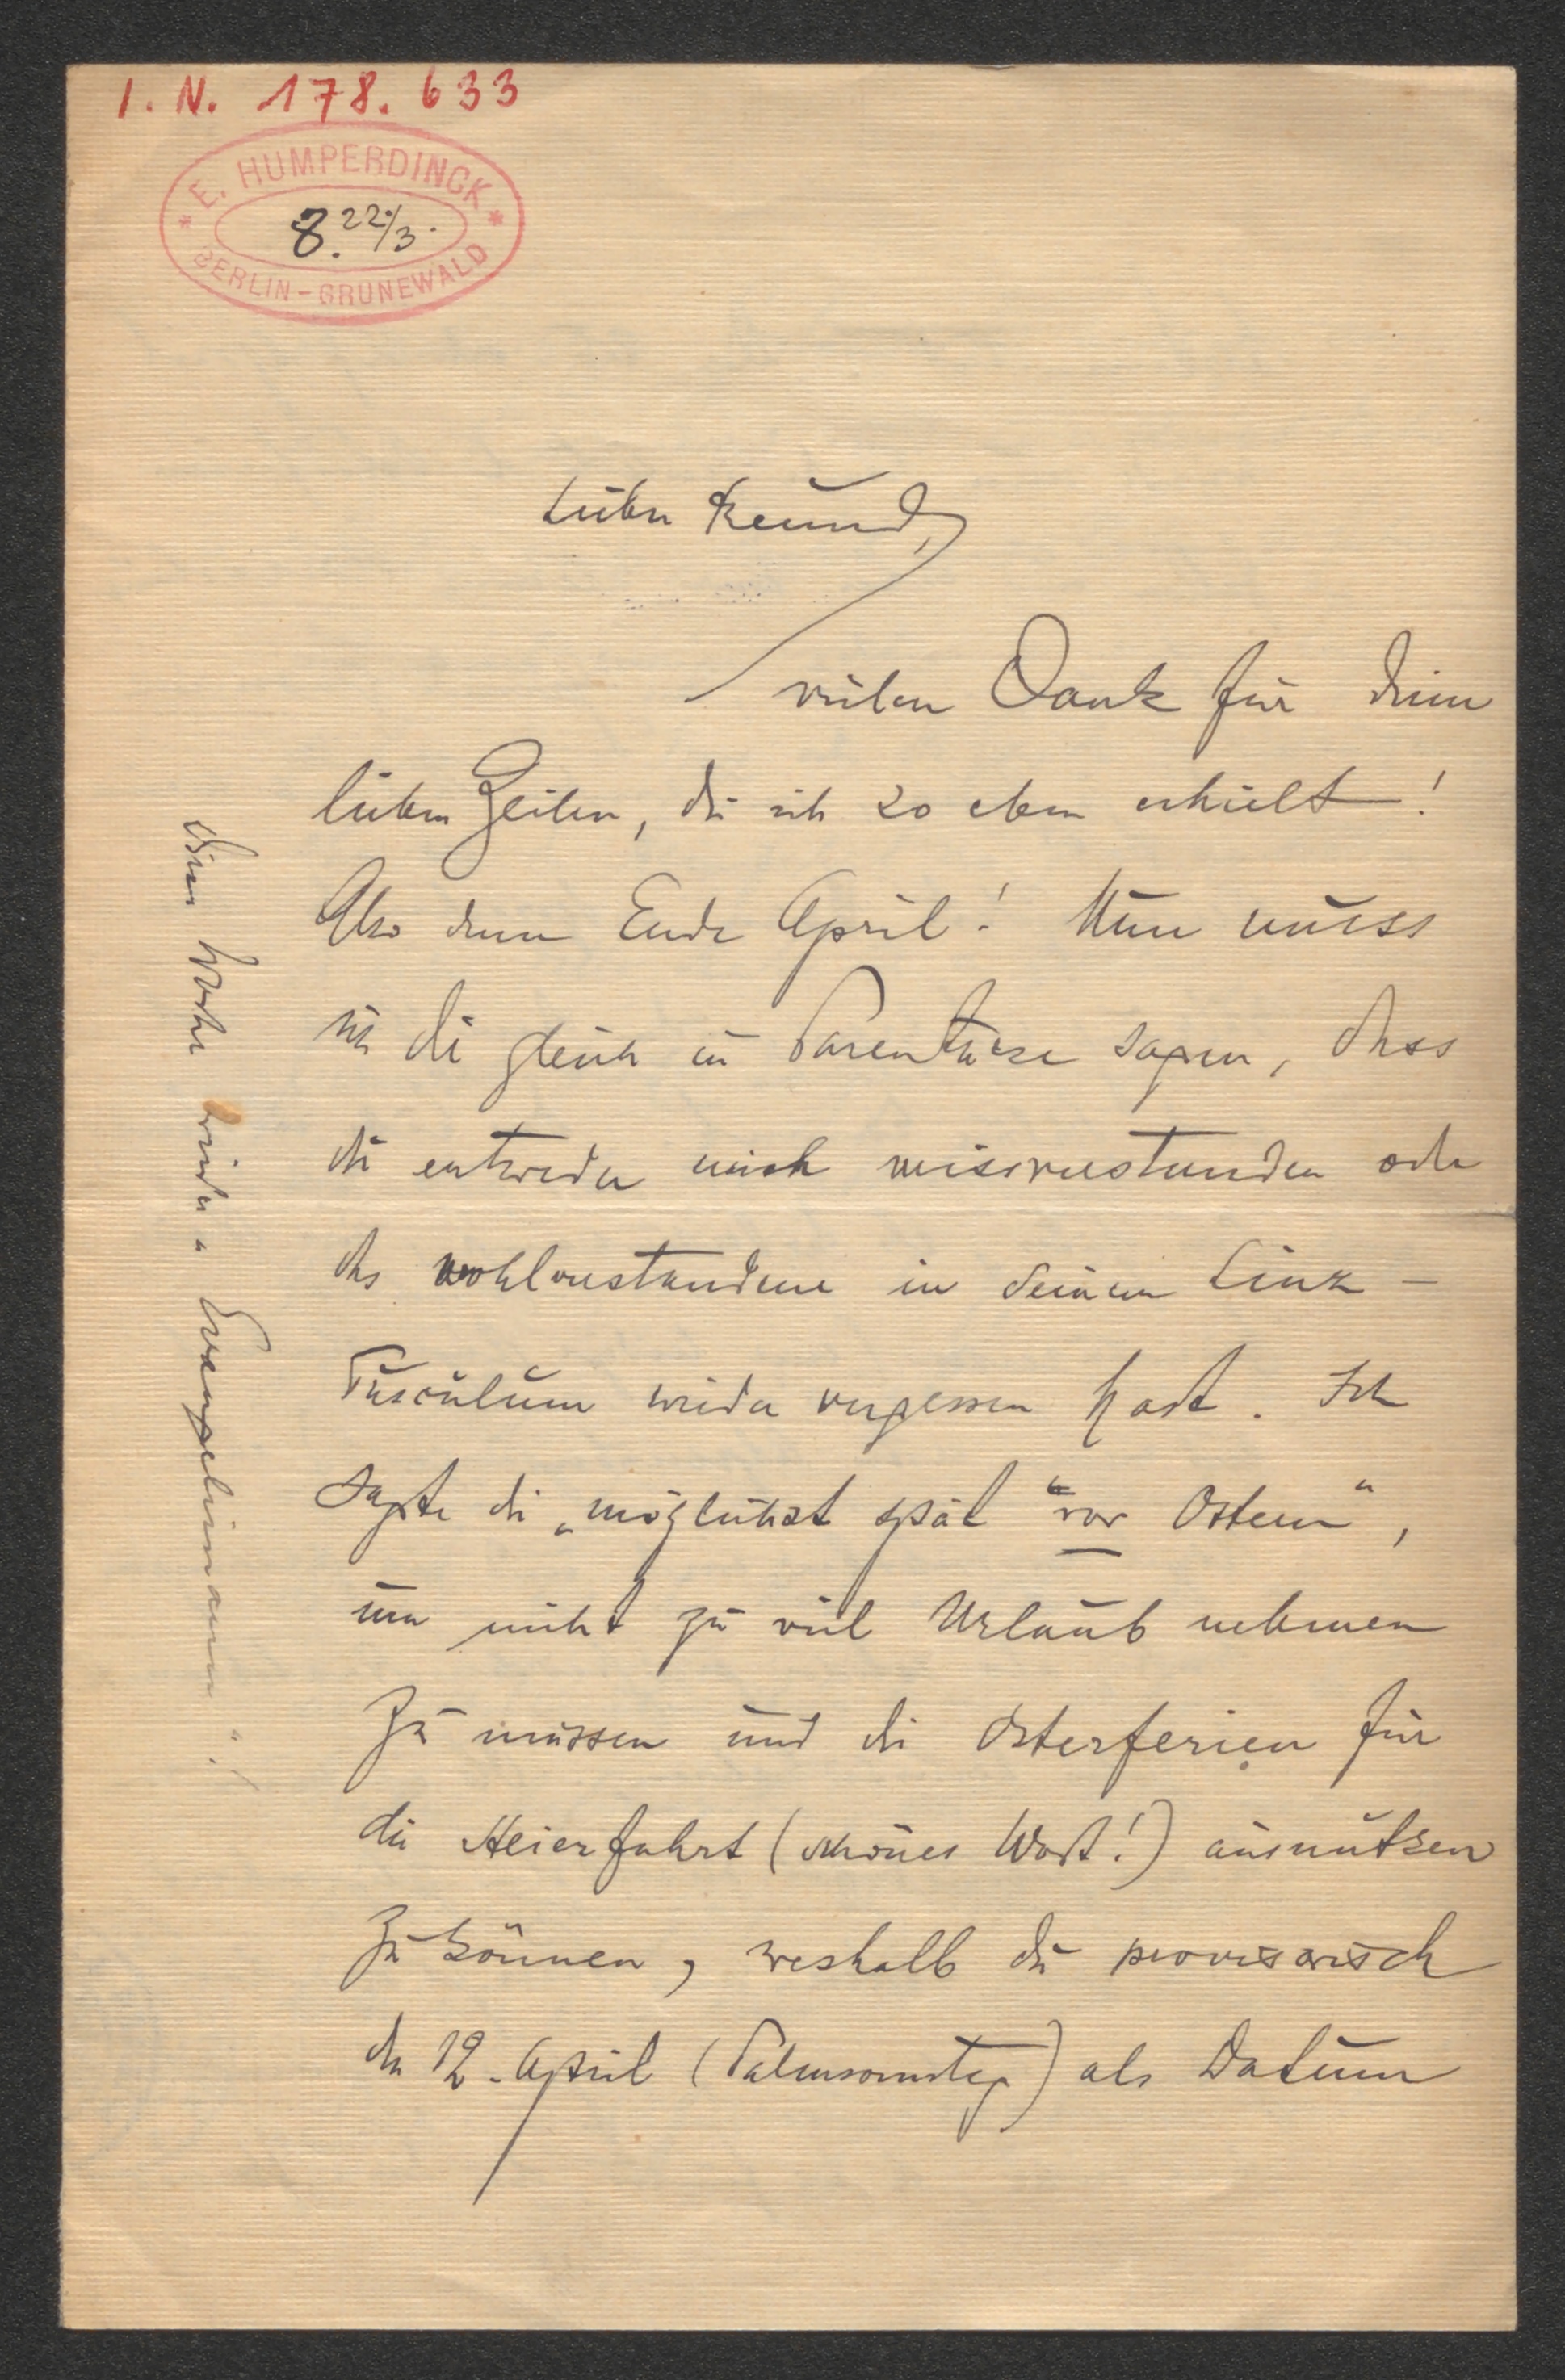 I. N. 178.633
* E. HUMPERDINCK *
8. 22/3.
BERLIN-GRUNEWALD
Lieber Freund,
vielen Dank für deine
lieben Zeilen, die ich so eben erhielt!
Also denn Ende April! Nun muss
ich dir gleich in Parenthese sagen, dass
du entweder mich missverstanden oder
das wohlverstandene in deinem Linz-
Tusculum wieder vergessen hast. Ich
sagte dir „möglichst spät "vor Ostern",
um nicht zu viel Urlaub nehmen
zu müssen und die Osterferien für
die Steierfahrt (schönes Wort!) ausnützen
zu können, weshalb du provisorisch
den 12. April (Palmsonntag) als Datum
diese Woche wieder „Evangelimann"!